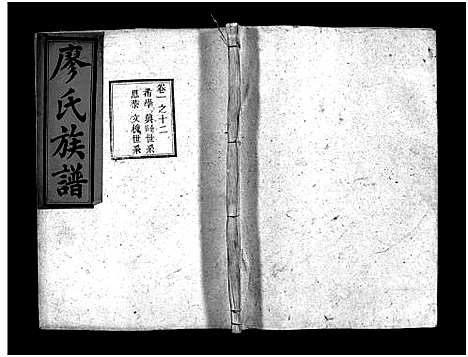 廖氏族譜
卷一之十二
希學 與 世系
恩榮 文機世系